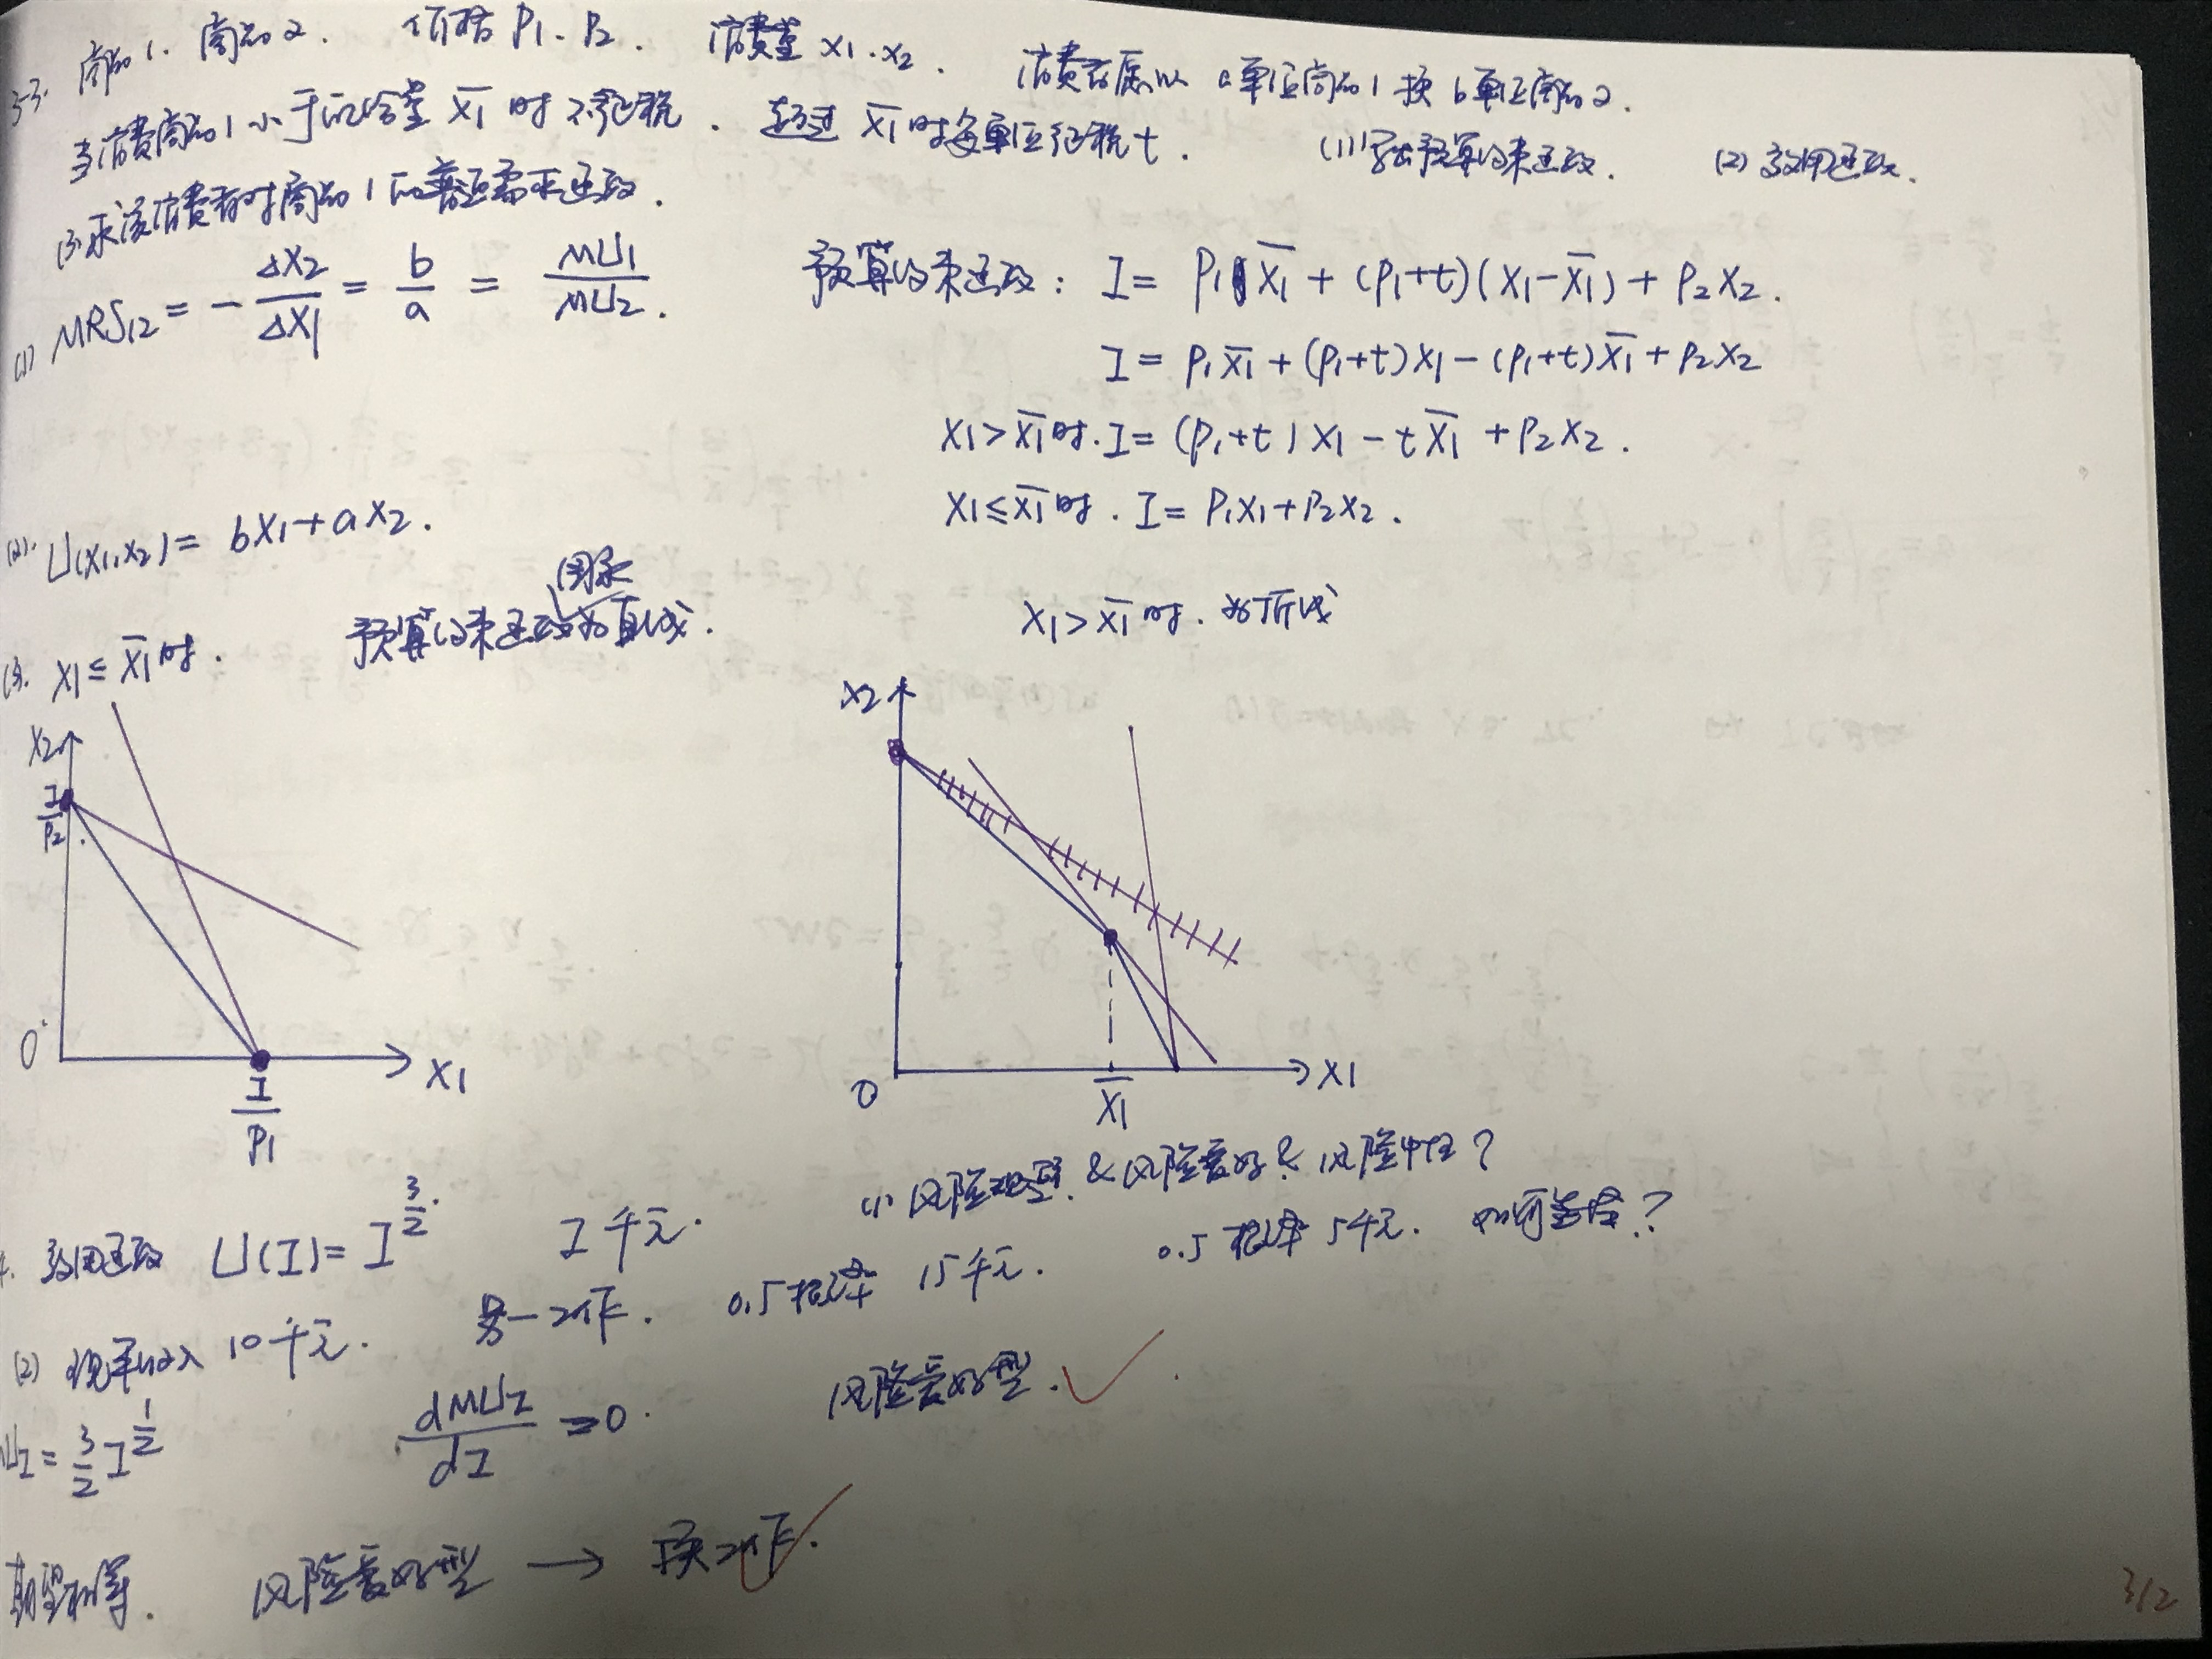 33. 商品1. 商品2. 价格P₁、P₂. 消费量x₁.x₂. 消费者愿以a单位商品1换b单位商品2.
当消费商品1小于配给量 x̄₁ 时不征税. 超过 x̄₁ 时每单位征税t. (1)写出预算约束函数. (2)效用函数.
(3)求该消费者对商品1的普通需求函数.
(1) MRS₁₂ = -ΔX₂/ΔX₁ = b/a = MU₁/MU₂. 预算约束函数: I = P₁x̄₁ + (P₁+t)(x₁-x̄₁) + P₂x₂.
I = P₁x̄₁ + (P₁+t)x₁ - (P₁+t)x̄₁ + P₂x₂
x₁>x̄₁时. I = (P₁+t)x₁ - tx̄₁ + P₂x₂.
x₁≤x̄₁时. I = P₁x₁+P₂x₂.
(2). U(x₁,x₂) = bx₁+ax₂.
(3. x₁≤x̄₁时. 预算约束函数图象为直线. x₁>x̄₁时. 为折线
x₂
I/P₂
0
x₁
I/P₁
x₂
0
x̄₁
x₁
效用函数 U(I) = I^(3/2). I千元. (1)风险规避 & 风险爱好 & 风险中性?
(2) 现年收入10千元. 另一工作. 0.5概率 15千元. 0.5概率 5千元. 如何选择?
= 3/2 I^(1/2) dMU_I/dI >0. 风险爱好型. ✓
期望相等. 风险爱好型 → 换工作. ✓
312